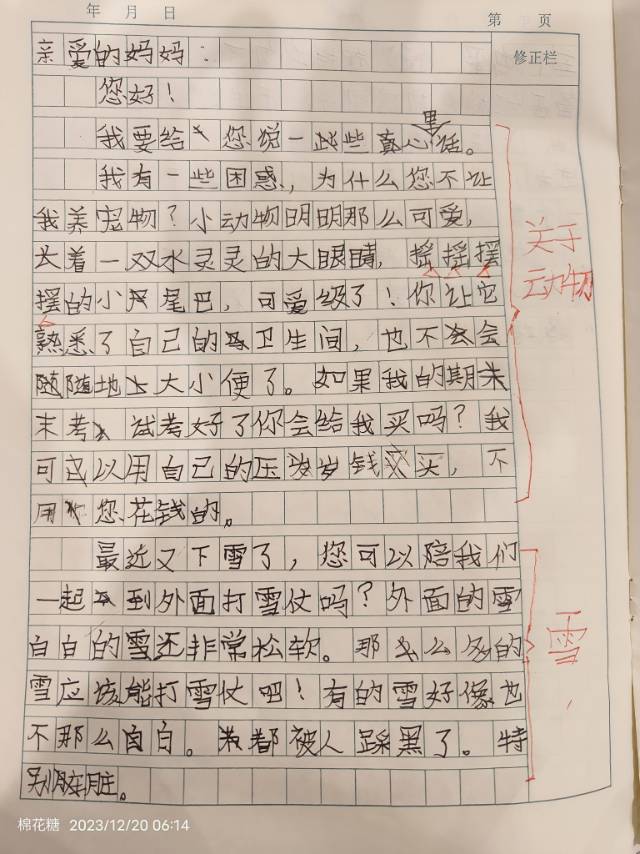 年 月 日 第 页
修正栏
亲爱的妈妈：
您好！
我要给您说一些真心里话。
我有一些困惑，为什么您不让
我养宠物？小动物明明那么可爱，
长着一双水灵灵的大眼睛，摇摇摆
摆的小尾巴，可爱级了！你让它
熟悉了自己的卫生间，也不会
随随地大小便了。如果我的期末
末考试考好了你会给我买吗？我
可以用自己的压岁钱买，不
用您花钱的。
关于
动物
最近又下雪了，您可以陪我们
一起到外面打雪仗吗？外面的雪
白白的雪还非常松软。那么么多的
雪应该能打雪仗吧！有的雪好像也
不那么白白。都被人踩黑了。特
别脏脏。
雪
棉花糖 2023/12/20 06:14